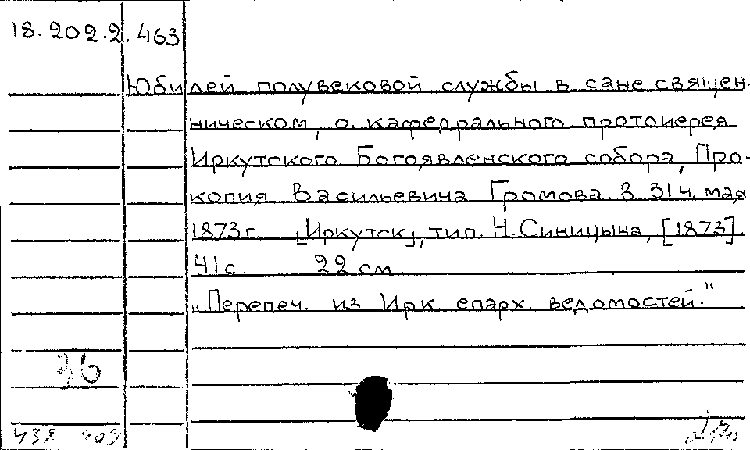 18.202.2.463
Юбилей полувековой службы в сане священ-
ническом, о. кафедрального протоиерея
Иркутского Богоявленского собора, Про-
копия Васильевича Громова. 3 мая
1873 г. [Иркутск], тип. Н. Синицына, [1873].
41 с. 22 см
"Перепеч. из Ирк. епарх. ведомостей."
36